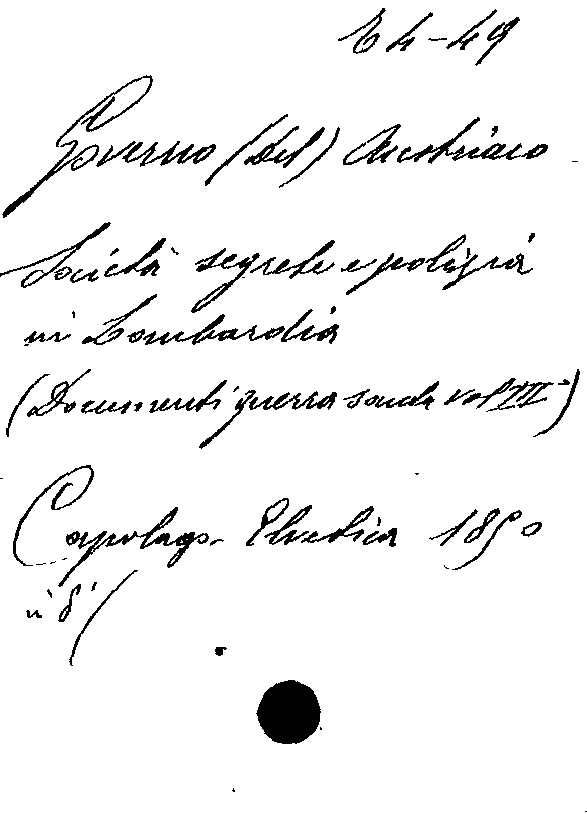 E 4-49
Governo (Del) Austriaco
Società segrete e polizia
in Lombardia
(Documenti guerra santa vol III°)
Capolago - Elvetica 1850
in 8° (